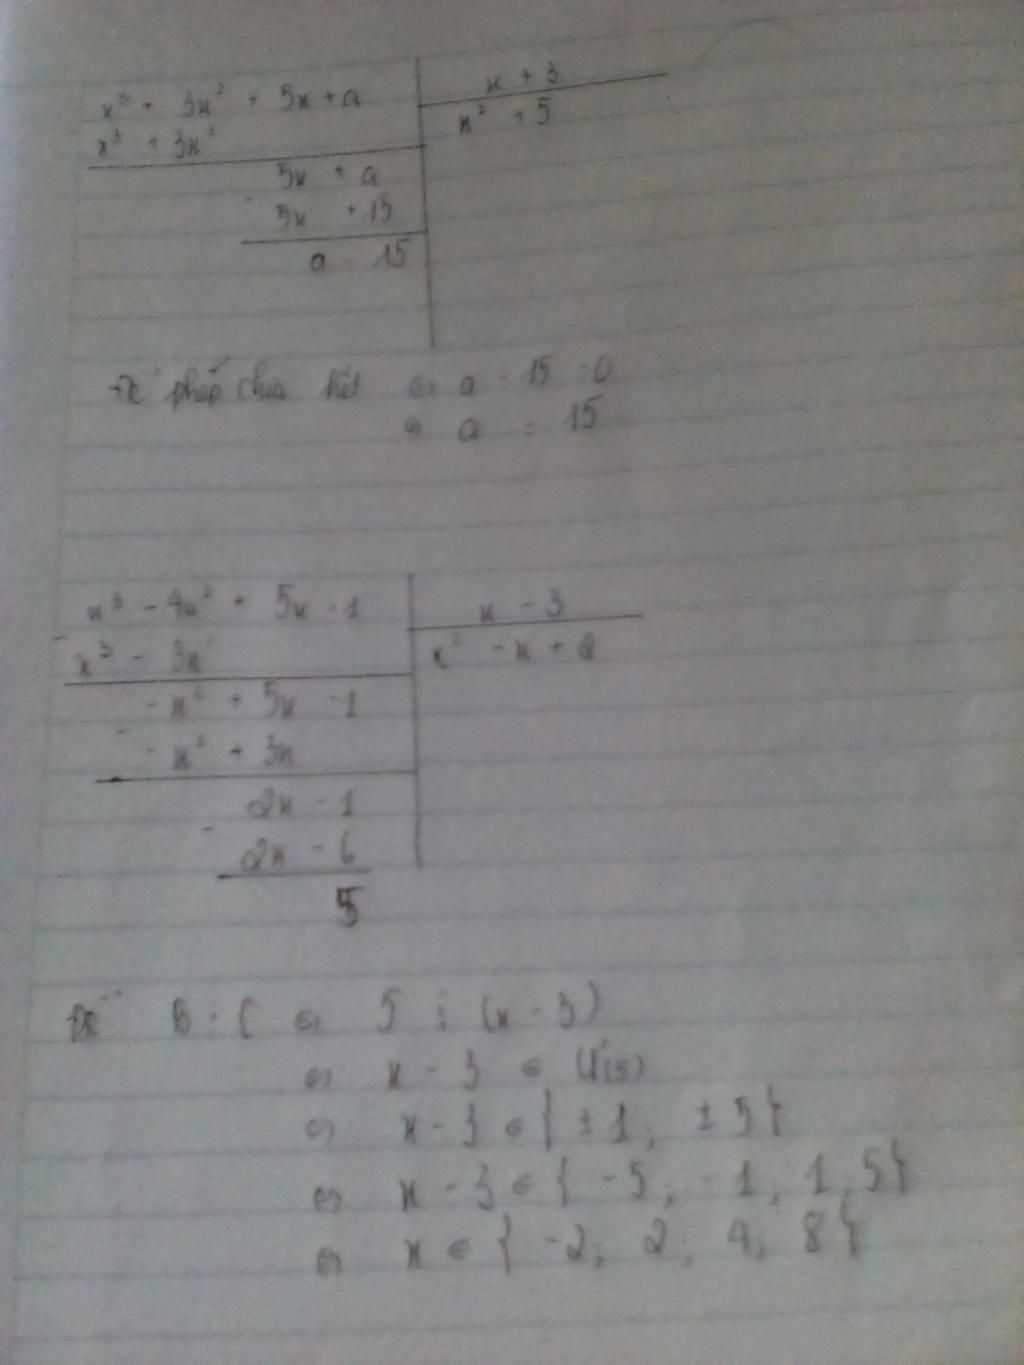 x³ + 3x² + 5x + a | x + 3
x³ + 3x² | x² + 5
5x + a
- 5x + 15
a - 15
Để phép chia hết ⇔ a - 15 = 0
⇔ a = 15
x³ - 4x² + 5x - 1 | x - 3
- x³ - 3x² | x² - x + 2
- x² + 5x - 1
- - x² + 3x
2x - 1
- 2x - 6
5
Để B : C ⇔ 5 ⋮ (x - 3)
⇔ x - 3 ∈ Ư(5)
⇔ x - 3 ∈ { ±1; ±5}
⇔ x - 3 ∈ { -5; -1, 1, 5}
⇔ x ∈ { -2, 2, 4, 8}